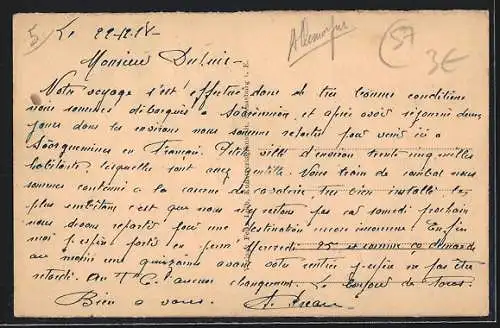 5
Le 22-12-18-
Allemagne
57
3€
Monsieur
Notre voyage s'est effectué dans de très bonnes conditions
nous sommes débarqués à et après avoir séjourné deux
jours dans les environs nous sommes repartis pour venir ici à
Sarreguemines en Français. Petite ville d'environ trente cinq milles
habitants, lesquelles sont assez gentille. Notre train de combat nous
sommes cantonné à la caserne de cavalerie, très bien installé, le
plus embêtant c'est que nous n'y restons pas car samedi prochain
nous devons repartir pour une destination encore inconnue. Enfin
moi j'espère partir en perm' Mercredi 25 et comme ça demande
au moins une quinzaine avant votre rentrée j'espère ne pas être
retardé. Au aucun changement. Le bonjour de tous.
Bien à vous.